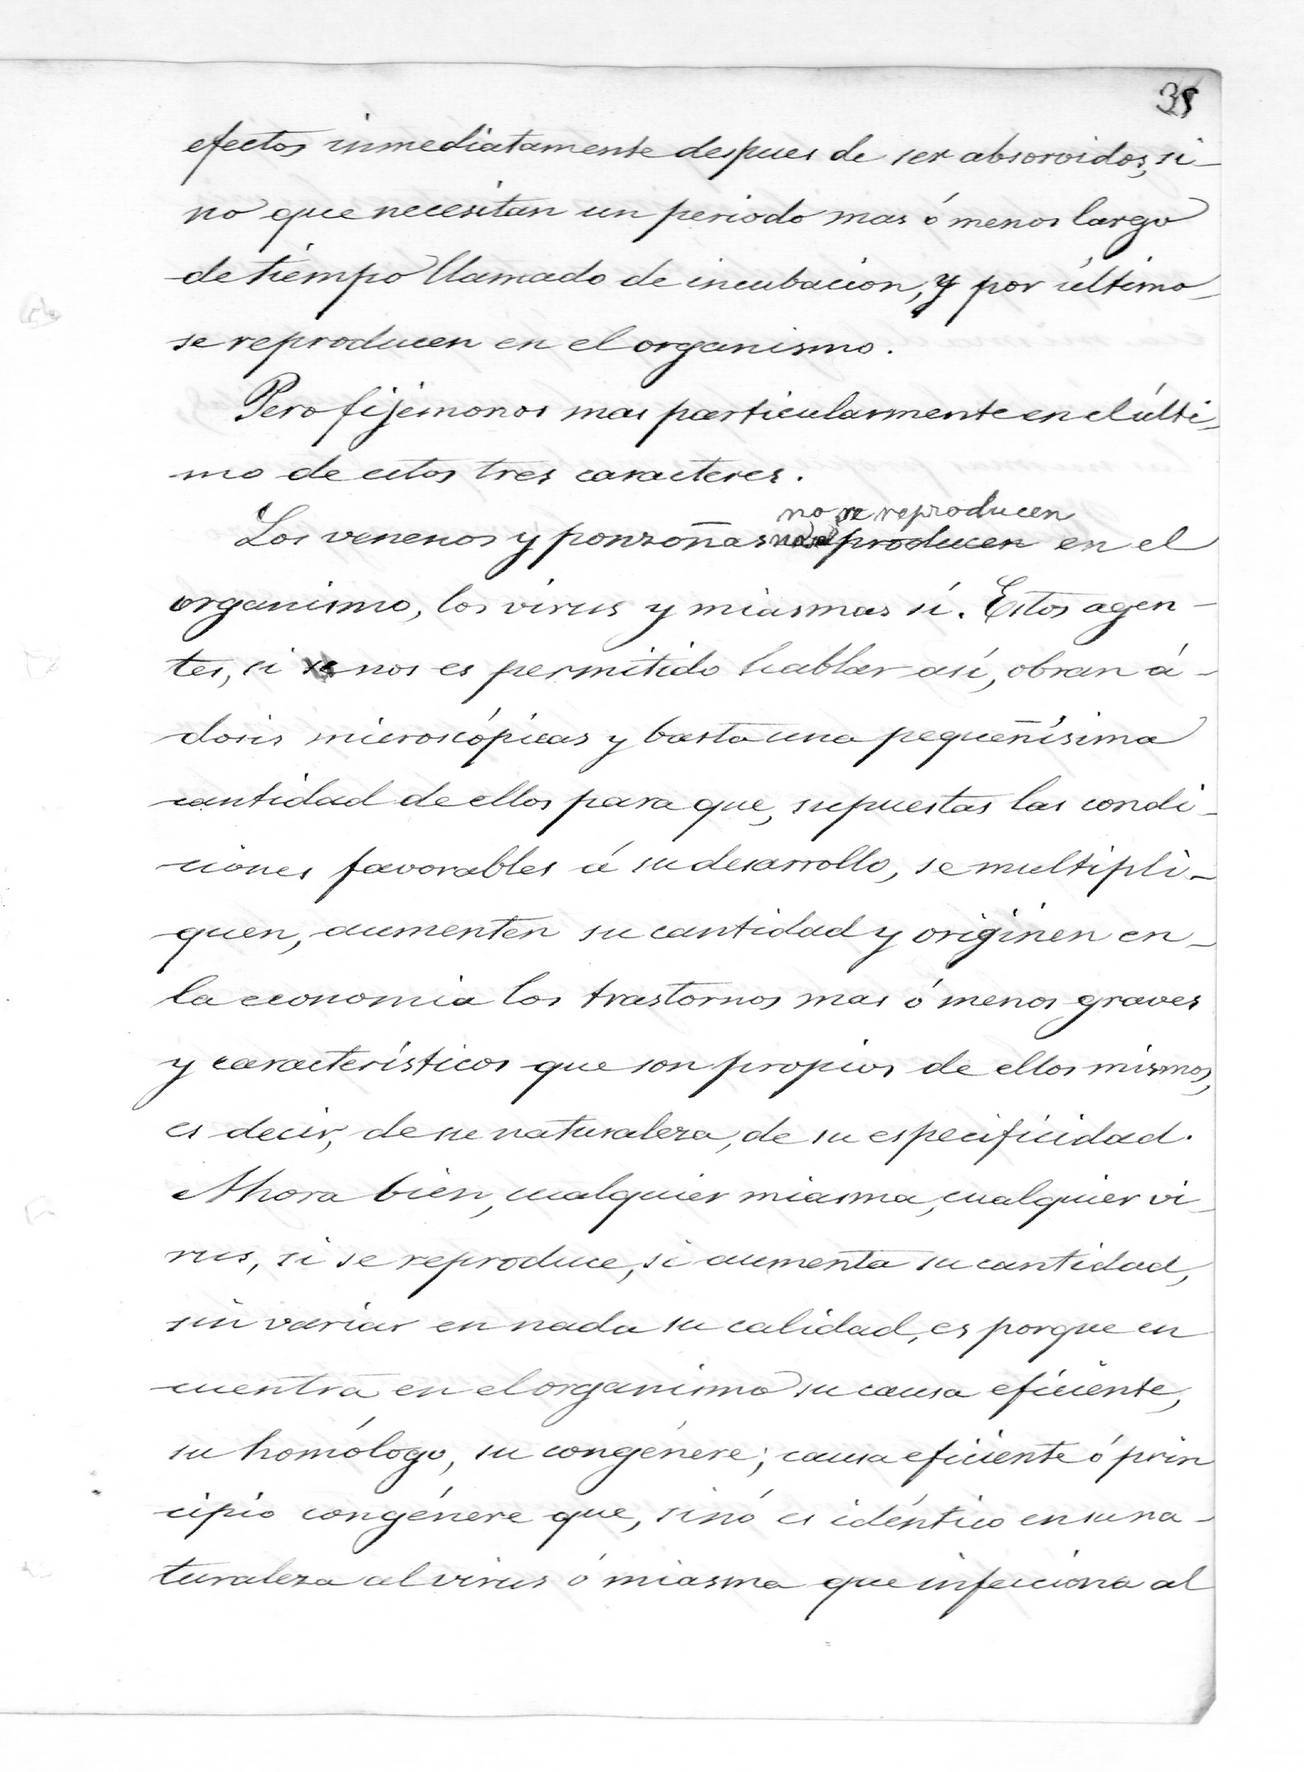 38
efectos inmediatamente despues de ser absorvidos, si-
no que necesitan un periodo mas ó menos largo
de tiempo llamado de incubacion, y por último
se reproducen en el organismo.
Pero fijémonos mas particularmente en el últi-
mo de estos tres caracteres.
no se reproducen
Los venenos y ponzoñas producen en el
organismo, los virus y miasmas sí. Estos agen-
tes, si nos es permitido hablar así, obran á
dosis microscópicas y basta una pequeñísima
cantidad de ellos para que, supuestas las condi-
ciones favorables á su desarrollo, se multipli-
quen, aumenten su cantidad y originen en
la economia los trastornos mas ó menos graves
y característicos que son propios de ellos mismos,
es decir, de su naturaleza, de su especificidad.
Ahora bien, cualquier miasma, cualquier vi-
rus, si se reproduce, si aumenta su cantidad,
sin variar en nada su calidad, es porque en
cuentra en el organismo su causa eficiente,
su homólogo, su congénere; causa eficiente ó prin
cipio congénere que, sinó es idéntico en su na-
turaleza al virus ó miasma que infecciona al